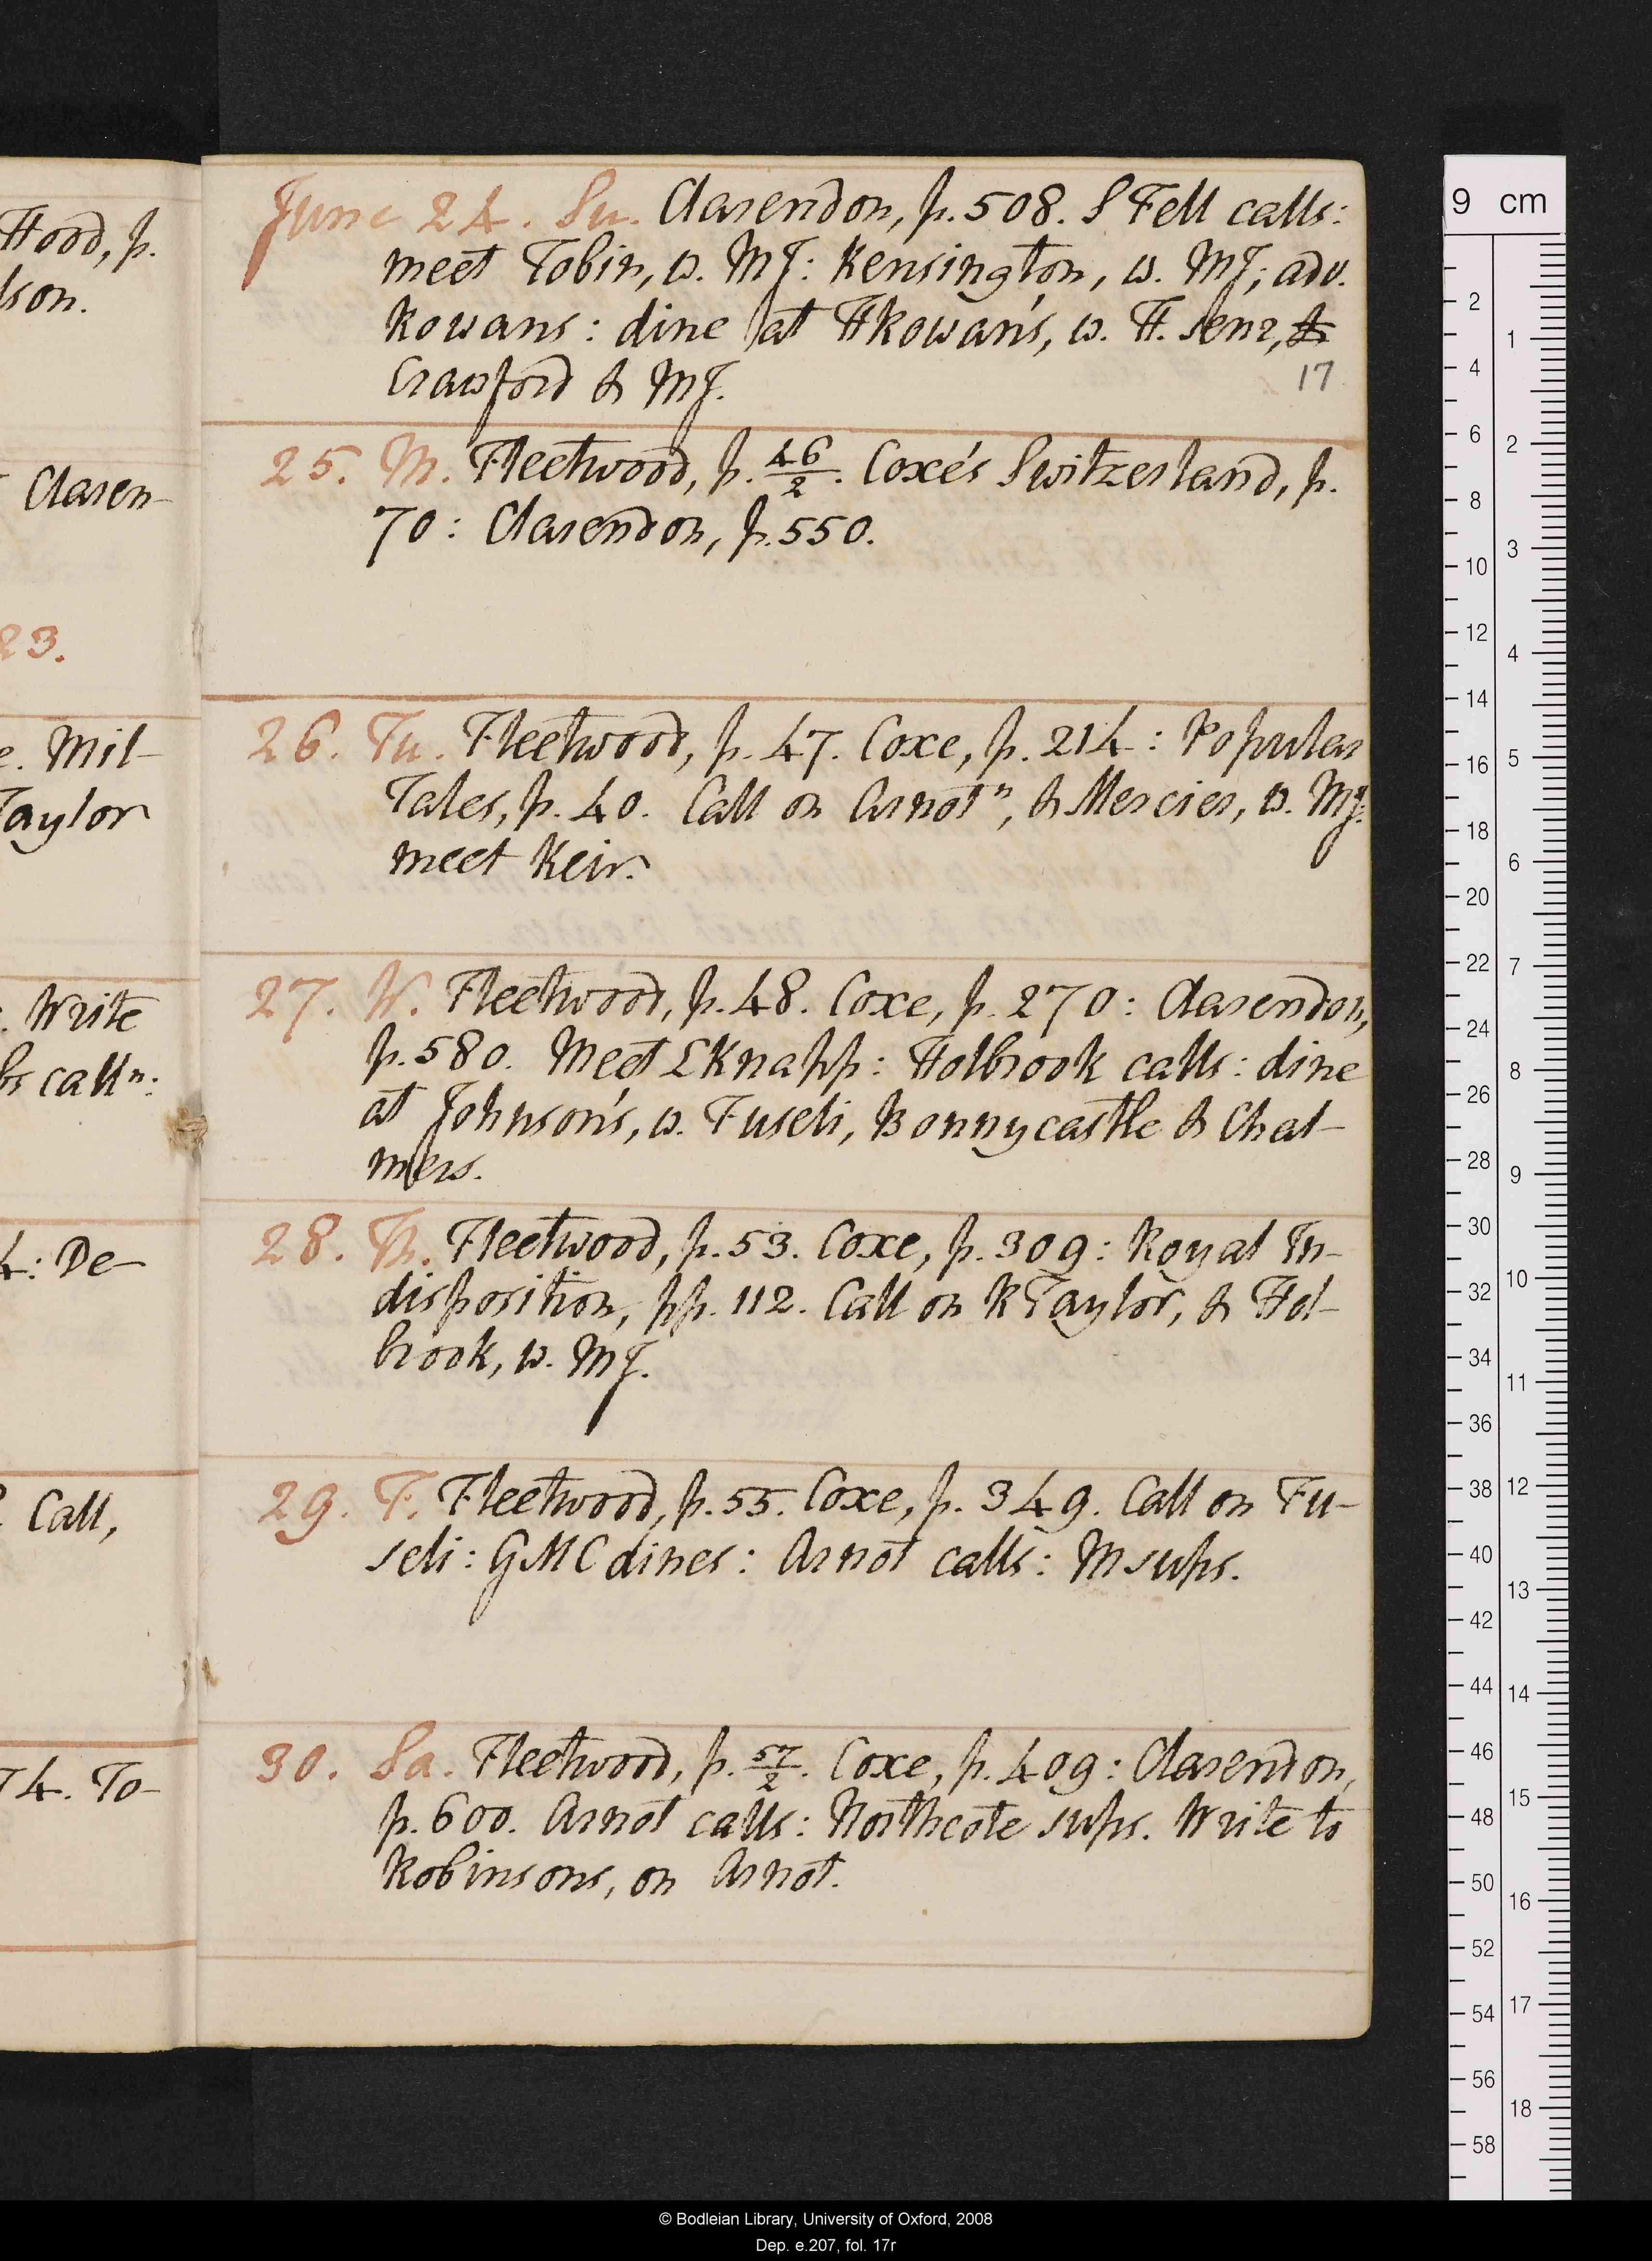 Hood, p.
lson.
Claren-
23.
e. Mil-
Taylor
. Write
calln:
4: De-
Call,
74. To-
June 24. Su. Clarendon, p. 508. S Fell calls:
meet Tobin, w. MJ: Kensington, w. MJ; adv.
Rowans: dine at HRowan's, w. H. senr, &
Crawford & MJ.
17
25. M. Fleetwood, p. 46/2. Coxe's Switzerland, p.
70: Clarendon, p. 550.
26. Tu. Fleetwood, p. 47. Coxe, p. 214: Popular
Tales, p. 40. Call on Arnot n, & Mercier, w. MJ:
meet Keir.
27. W. Fleetwood, p. 48. Coxe, p. 270: Clarendon,
p. 580. Meet LKnapp: Holbrook calls: dine
at Johnson's, w. Fuseli, Bonnycastle & Chal-
mers.
28. Th. Fleetwood, p. 53. Coxe, p. 309: Royal In-
disposition, pp. 112. Call on RTaylor, & Hol-
brook, w. MJ.
29. F. Fleetwood, p. 55. Coxe, p. 349. Call on Fu-
seli: GMC dines: Arnot calls: M sups.
30. Sa. Fleetwood, p. 57/2. Coxe, p. 409: Clarendon,
p. 600. Arnot calls: Northcote sups. Write to
Robinsons, on Arnot.
9 cm
2 4 6 8 10 12 14 16 18 20 22 24 26 28 30 32 34 36 38 40 42 44 46 48 50 52 54 56 58
1 2 3 4 5 6 7 8 9 10 11 12 13 14 15 16 17 18
© Bodleian Library, University of Oxford, 2008
Dep. e.207, fol. 17r